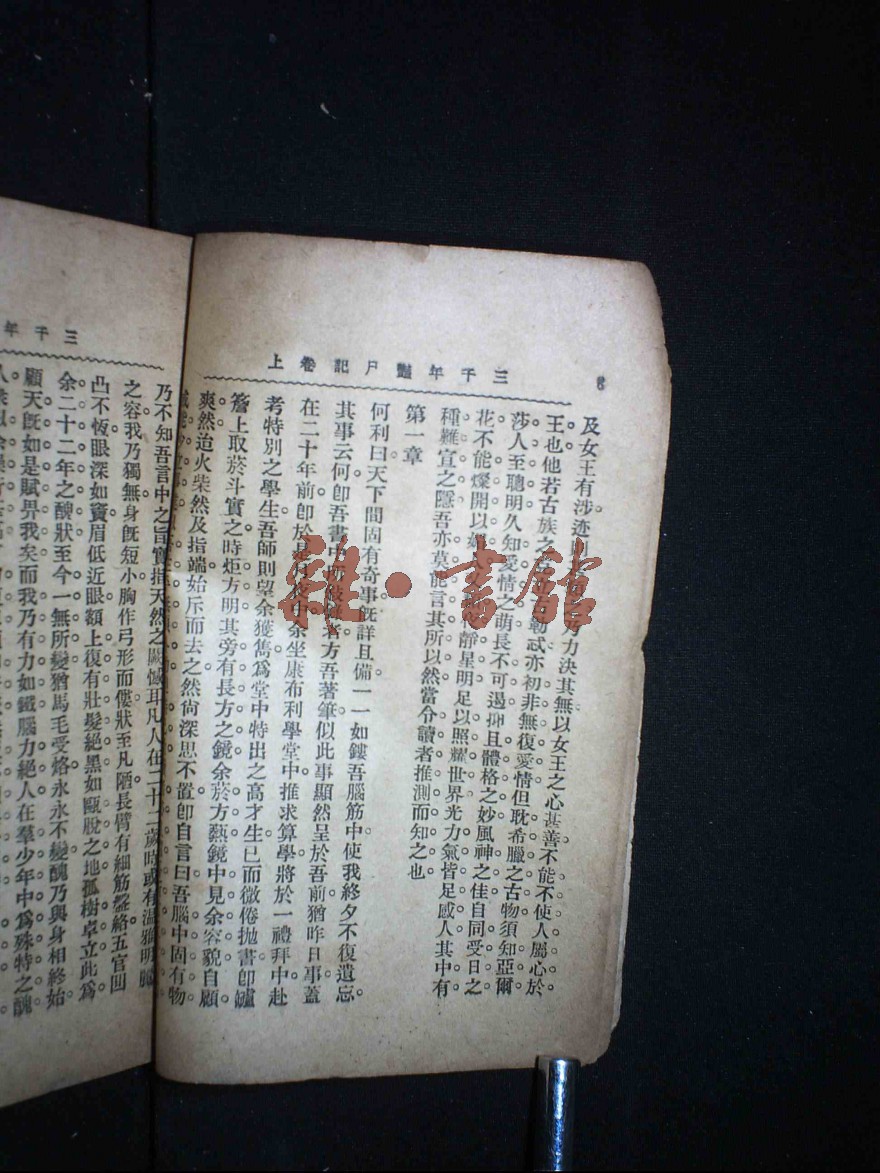 三千年艷尸記卷上
6
及女王有涉迹
王也他若古族之
莎人至聰明久知愛情之萌長不可遏抑且體格之妙風神之佳自同受日之
花不能燦開以
種難宣之隱吾亦莫能言其所以然當令讀者推測而知之也
第一章
何利曰天下間固有奇事旣詳且備一一如鏤吾腦筋中使我終夕不復遺忘
其事云何卽吾書中所
者方吾著筆似此事顯然呈於吾前猶昨日事蓋
在二十年前卽於是月夜中余坐康布利學堂中推求算學將於一禮拜中赴
考特別之學生吾師則望余獲雋爲堂中特出之高才生已而微倦拋書卽爐
簷上取菸斗實之時炬方明其旁有長方之鏡余菸方爇鏡中見余容貌自顧
爽然迨火柴然及指端始斥而去之然尙深思不置卽自言曰吾腦中固有物
力決其無以女王之心甚善不能不使人屬心於
亦初非無復愛情但耽希臘之古物須知亞爾
靜星明足以照耀世界光力氣皆足感人其中有
雜·書館
三千年
乃不知吾言中之旨實指天然之闕憾耳凡人在二十二歲時或有溫雅明
之容我乃獨無身旣短小胸作弓形而僂狀至凡陋長臂有細筋盤絡五官凹
凸不恆眼深如竇眉低近眼額上復有壯髮絕黑如甌脫之地孤樹卓立此爲
余二十二年之醜狀至今一無所變猶馬毛受烙永永不變醜乃與身相終始
顧天旣如是賦畀我矣而我乃有力如鐵腦力絕人在羣少年中爲殊特之醜